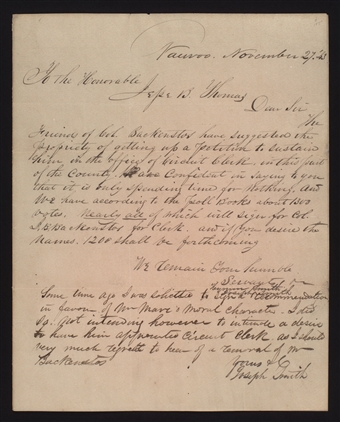 Nauvoo. November 27. 43
To the Honorable
Jesse B. Thomas
Dear Sir
The
Friends of Col Backenstos have suggested the
propriety of getting up a Petition to sustain
him in the office of Circuit Clerk in this part
of the County, We are Confident in saying to you
that it is only spending time for Nothing, and
We have according to the Poll Books about 1300
votes. Nearly all of which will sign for Col
J B Backenstos for Clerk. and if you desire the
Names. 1200 shall be forthcoming
We Remain Your humble
Servants
Hyrum Smith
Joseph Smith
Some time ago I was solicited to sign a recommendation
in favour of Mr Marr's Moral character. I did
So. Not intending however to intimate a desire
to have him appointed Circuit Clerk as I should
very much regrete to hear of a removal of Mr
Backenstos
Yours &C
Joseph Smith